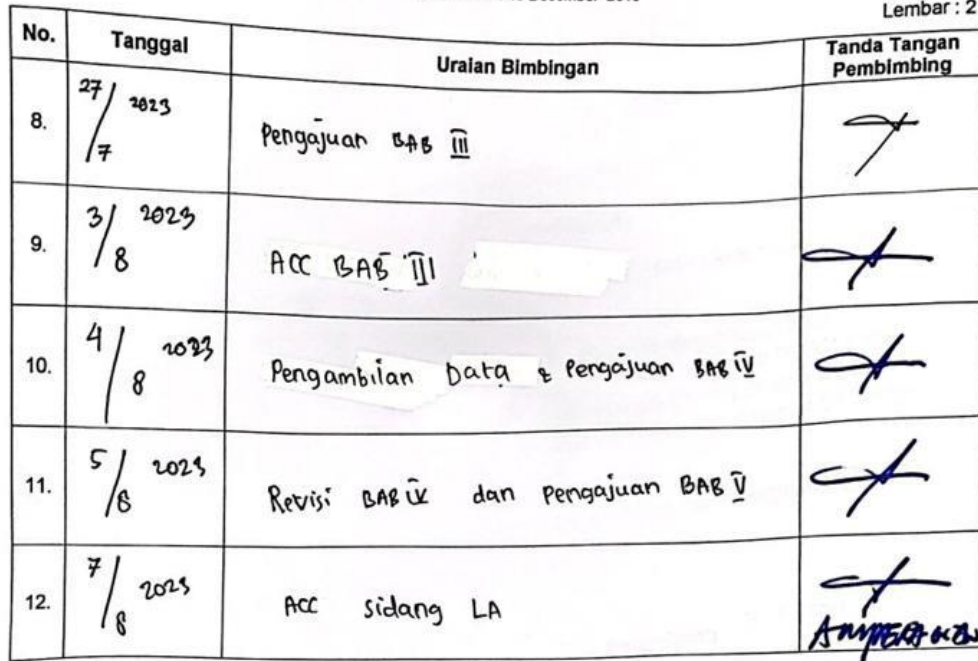 Lembar : 2
No. Tanggal Uraian Bimbingan Tanda Tangan Pembimbing
8. 27/7 2023 Pengajuan BAB III
9. 3/8 2023 ACC BAB III
10. 4/8 2023 Pengambilan Data & Pengajuan BAB IV
11. 5/8 2023 Revisi BAB IV dan Pengajuan BAB V
12. 7/8 2023 ACC sidang LA